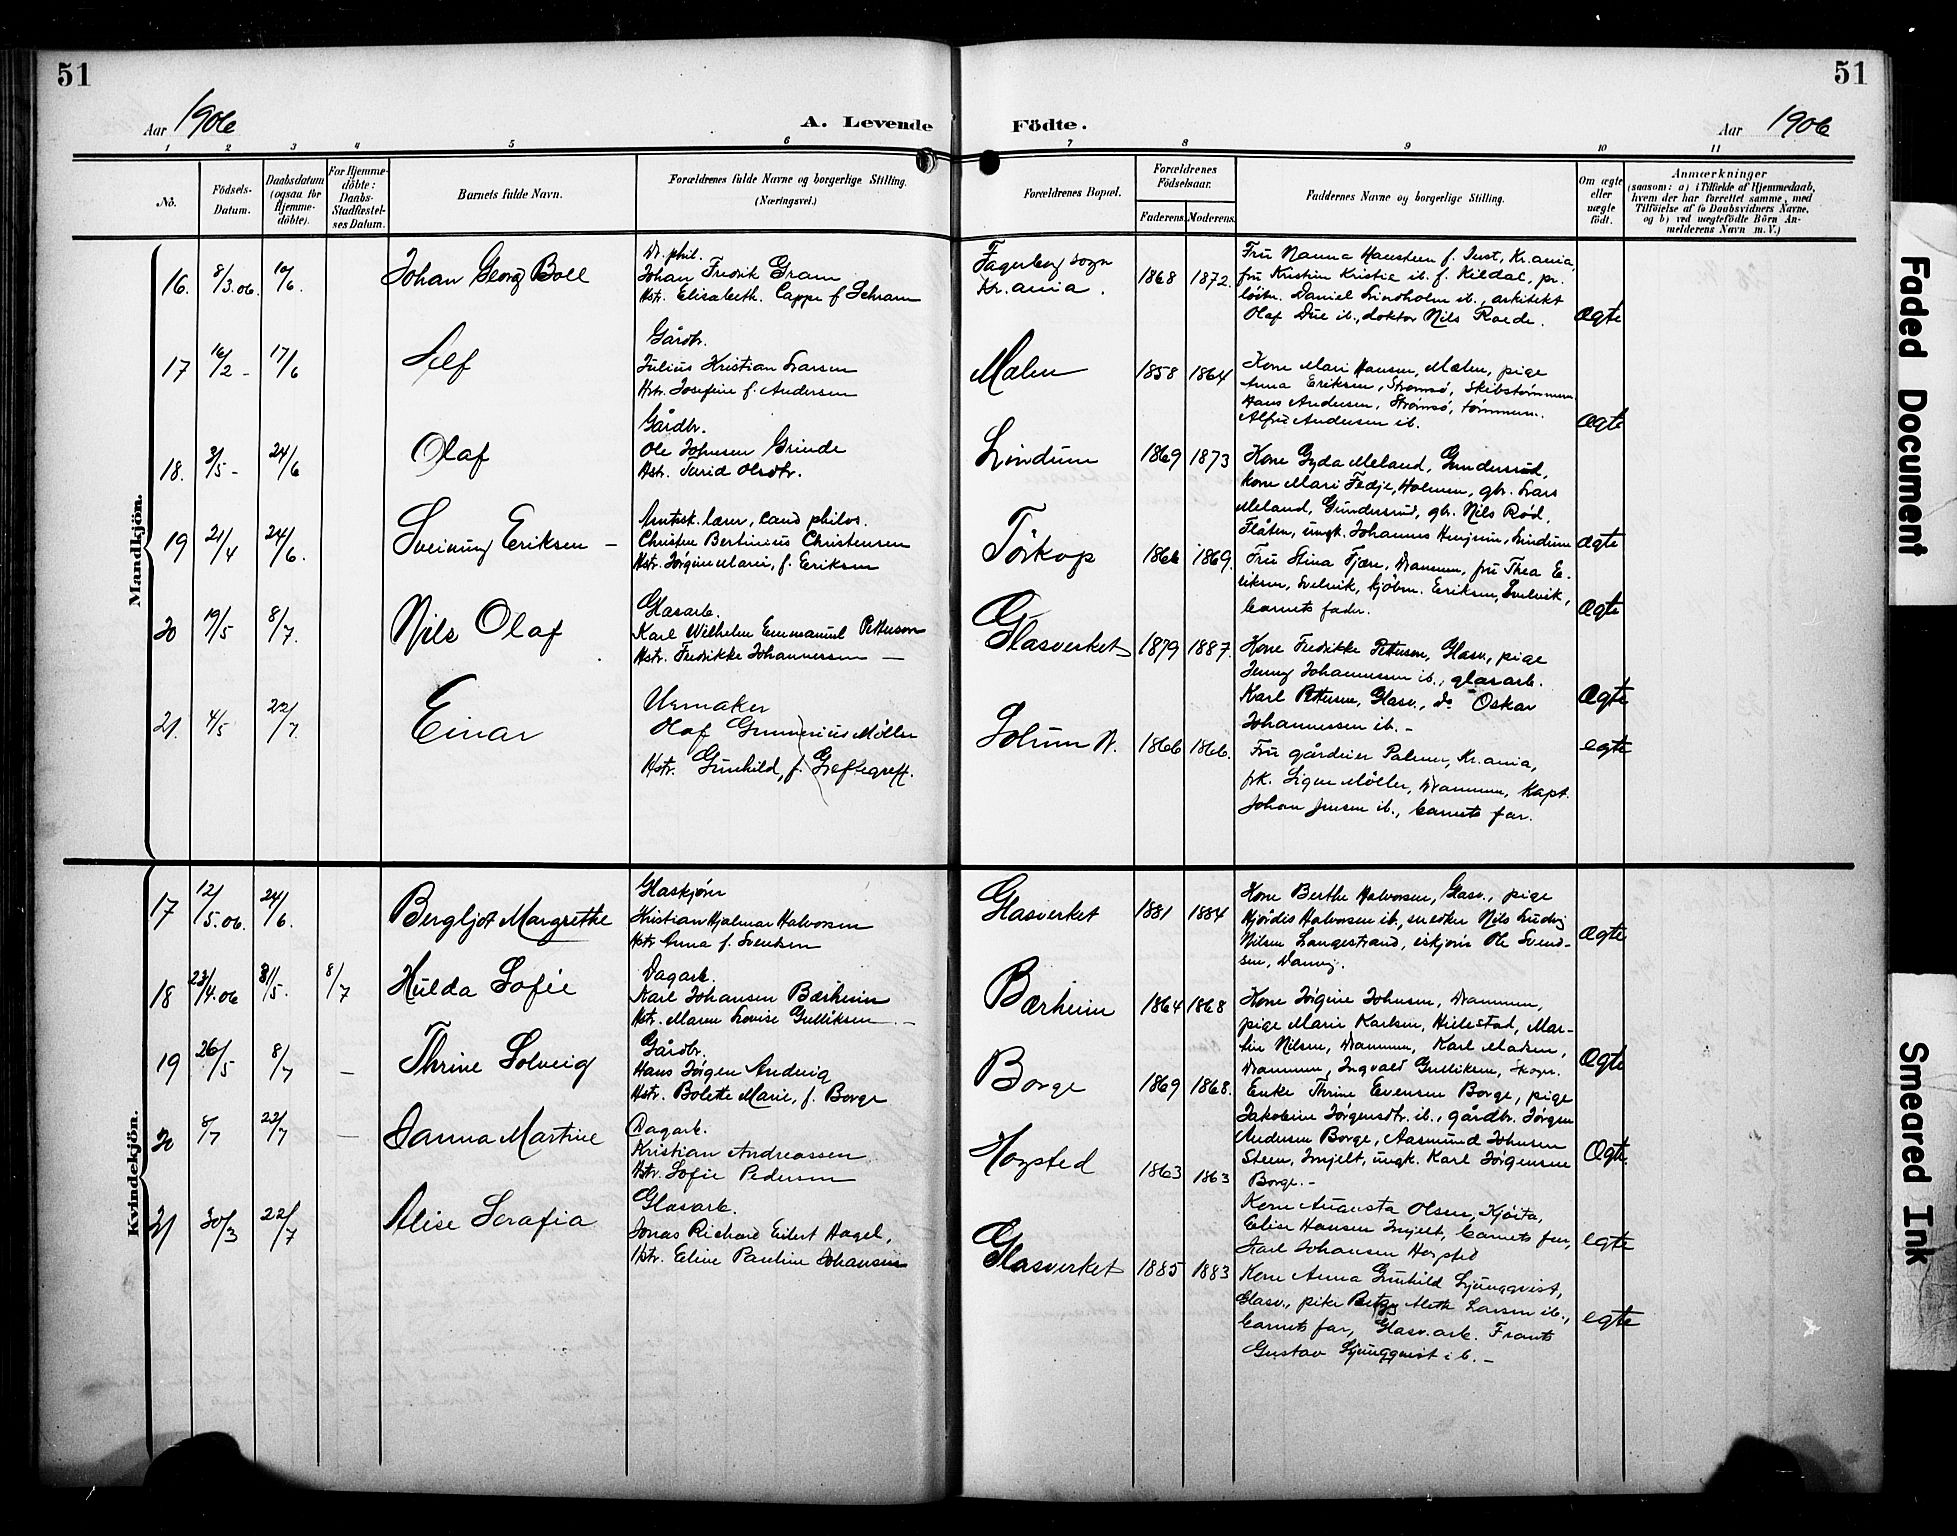 51
51
Aar 1906
A. Levende
Födte.
Aar 1906
1 2 3 4 5 6 7 8 9 10 11
No.
Födsels-Datum.
Daabsdatum (ogsaa for Hjemme-döbte).
For Hjemme-döbte: Daabs-Stadfæstel-ses Datum.
Barnets fulde Navn.
Forældrenes fulde Navne og borgerlige Stilling.
(Næringsvei.)
Forældrenes Bopæl.
Forældrenes Födselsaar.
Faderens. Moderens.
Faddernes Navne og borgerlige Stilling.
Om ægte eller uægte födt.
Anmærkninger
(saasom: a) i Tilfælde af Hjemmedaab,
hvem der har forrettet samme, med
Tilföielse af to Daabsvidners Navne,
og b) ved uægtefödte Börn An-
melderens Navn m. V.)
Mandkjön.
16. 8/3.06. 10/6. Johan Georg Boll
Dr. phil.
Johan Fredrik Gram
Hstr. Elisabeth. Cappe f. Schram
Fagerborg sogn
Kr.ania.
1868 1872.
Fru Nanna Hansteen f. Just, Kr.ania,
fru Kristin Kristie ib. f. Kildal, pr.
løitn. Daniel Lindholm ib., arkitekt
Olaf Due ib., doktor Nils Roede.
Ægte
17 16/2 - 17/6 Alf
Gårdbr.
Julius Kristian Larsen
Hstr. Josefine f. Andersen
Malen
1858 1864
Kone Mari Hansen, Malen, pige
Anna Eriksen, Strømsø, skibstømmerm.
Hans Andersen, Strømsø, tømmerm.
Alfred Andersen ib.
Ægte
18. 3/5 - 24/6 Olaf
Gårdbr.
Ole Johnsen Grinde
Hstr. Turid Olsdtr.
Lindum
1869 1873
Kone Gyda Meland, Gundersrud,
kone Mari Fedje, Holmen, gbr. Lars
Meland, Gundersrud, gbr. Nils Rød,
Flåten, ungk. Johannes, Lindum
Ægte
19 21/4 24/6. Sveinung Eriksen -
Amtssk. lærer, cand philos.
Christen Bertinius Christensen
Hstr. Jørgine Marie, f. Eriksen
Tørkop
1866 1869.
Fru Stina Fjære, Drammen, fru Thea E-
riksen, Svelvik, kjøbm. Eriksen, Svelvik,
barnets fader.
Ægte
20 19/5 8/7. Nils Olaf
Glasarb.
Karl Wilhelm Emmanuel Petterson
Hstr. Fredrikke Johannessen -
Glasverket
1879 1887.
Kone Fredrikke Pettersen, Glasv., pige
Jenny Johannessen ib., glasarb.
Karl Pettersen, Glasv., do Oskar
Johannessen ib. -
Ægte
21. 4/5 22/7. Einar
Urmaker
Olaf Gunnerius Møller
Hstr. Gunhild, f. Greftegreff.
Solum N.
1866 1866.
Fru gårdeier Palmer, Kr.ania,
frk. Signe Møller, Drammen, Kapt.
Johan Jensen ib., barnets far.
egte
Kvindekjön.
17 12/5.06. 24/6. Bergljot Margrethe
Glaskjører
Kristian Hjalmar Halvorsen
Hstr Anna f. Svendsen
Glasverket
1881 1884
Kone Berthe Halvorsen, Glasv., pige
Hjørdis Halvorsen ib., snedker Nils Ludvig
Nilsen Langestrand, iskjører Ole Svend-
sen, Danvig.
Ægte
18 23/4.06 31/5. 8/7 Hulda Sofie
Dagarb.
Karl Johansen Bærheim
Hstr. Maren Lovise Gulliksen. -
Bærheim
1864 1868
Kone Jørgine Johnsen, Drammen,
pige Marie Karlsen, Hillestad, Mar-
tin Nilsen, Drammen, Karl Madsen,
Drammen, Ingvald Gulliksen, Skogn.
Ægte
19 26/5 8/7 - Thrine Solveig
Gårdbr.
Hans Jørgen Andvig
Hstr. Bolette Marie, f. Borge
Borge
1869 1868.
Enke Thrine Evensen Borge, pige
Jakobine Jørgensdtr. ib., gårdbr. Jørgen
Andersen Borge, Aasmund Johnsen
Steen, Imjelt, ungk. Karl Jørgensen
Borge. -
Ægte.
20 8/7 22/7 - Danna Martine
Dagarb.
Kristian Andreassen
Hstr. Sofie Pedersen
Hogsted
1863 1863
Kone Augusta Olsen, Kjøsta,
Elise Hansen Imjelt, barnets far,
Karl Johansen Hogsted
egte
21 30/3 22/7 Alise Serafia
Glasarb.
Jonas Richard Eilert Hagel,
Hstr. Eline Pauline Johansen
Glasverket
1885 1883
Kone Anna Gunhild Ljungqvist,
Glasv., pike Betzy Aleth Larsen ib.,
barnets far, Glasv.arb. Frants
Gustav Ljungqvist ib. -
egte
Faded Document
Smeared Ink